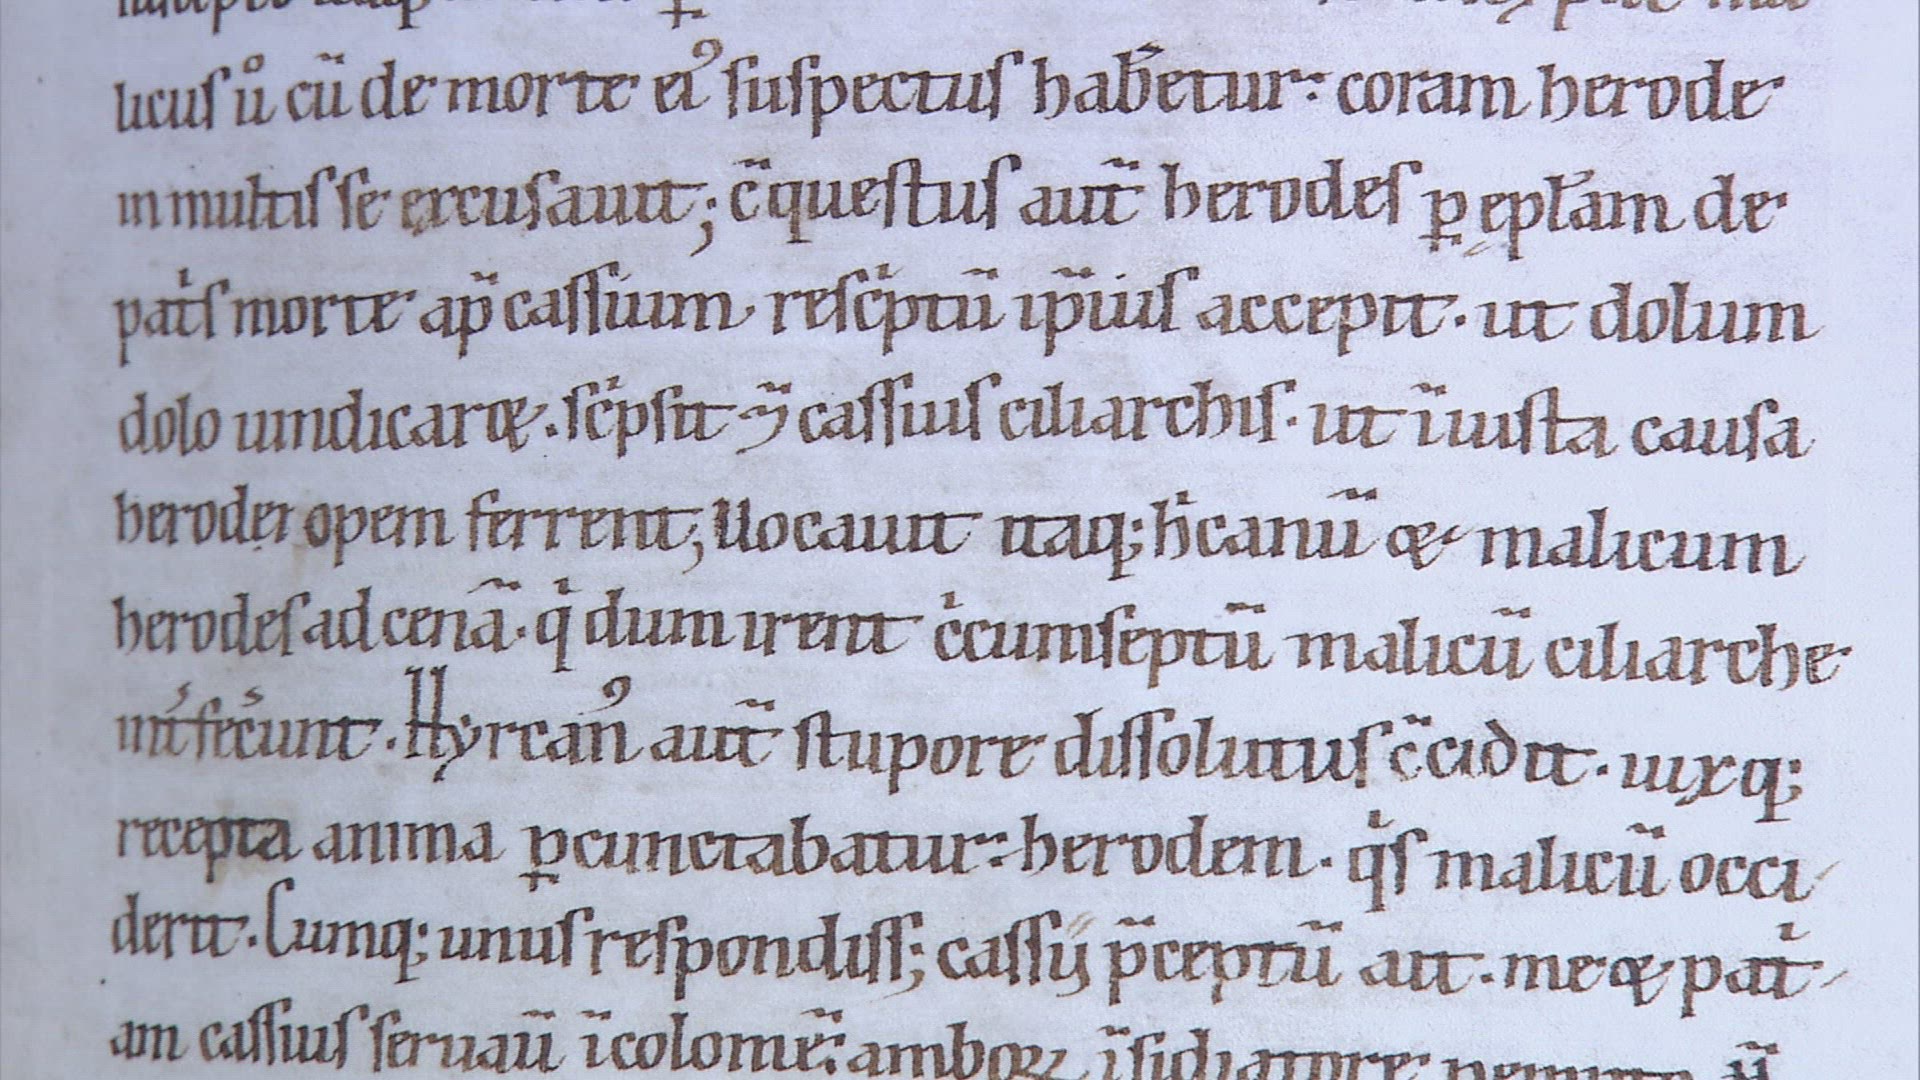 licus u͛o cū de morte ei᾽ suspectus hab̄etur: coram herode
in multis se excusauit; c̄questus aut̄ herodes p̱ ep̄łam de
patͥs morte ap̄ cassium rescͥptū ip̄ius accepit. ut dolum
dolo uindicaret. scͥpsit cassius ciliarchis. ut īiusta causa
herodei opem ferrent; Uocauit itaq; hͥcanū & malicum
herodes ad cenā. qͥ dum irent cͥcumseptū malicū ciliarche
int͛fec͛unt. Hyrcan᾽ aut̄ stupore dissolutus c̄cidit. uixq;
recepta anima p̱cunctabatur: herodem. qͥs malicū occi
derit. Cumq; unus respondiss; cassij p̄ceptū ait. me & patͥ
am cassius seruauit īcolome: amboꝝ īsidiatore